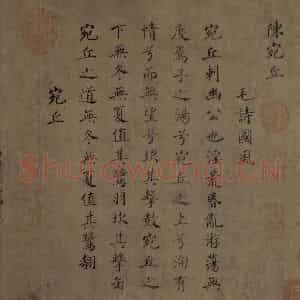 陳宛丘
毛詩國風
宛丘刺幽公也淫荒昏亂游蕩無
度焉子之湯兮宛丘之上兮洵有
情兮而無望兮坎其擊鼓宛丘之
下無冬無夏值其鷺羽坎其擊缶
宛丘之道無冬無夏值其鷺翿
宛丘
Shufawang.CN